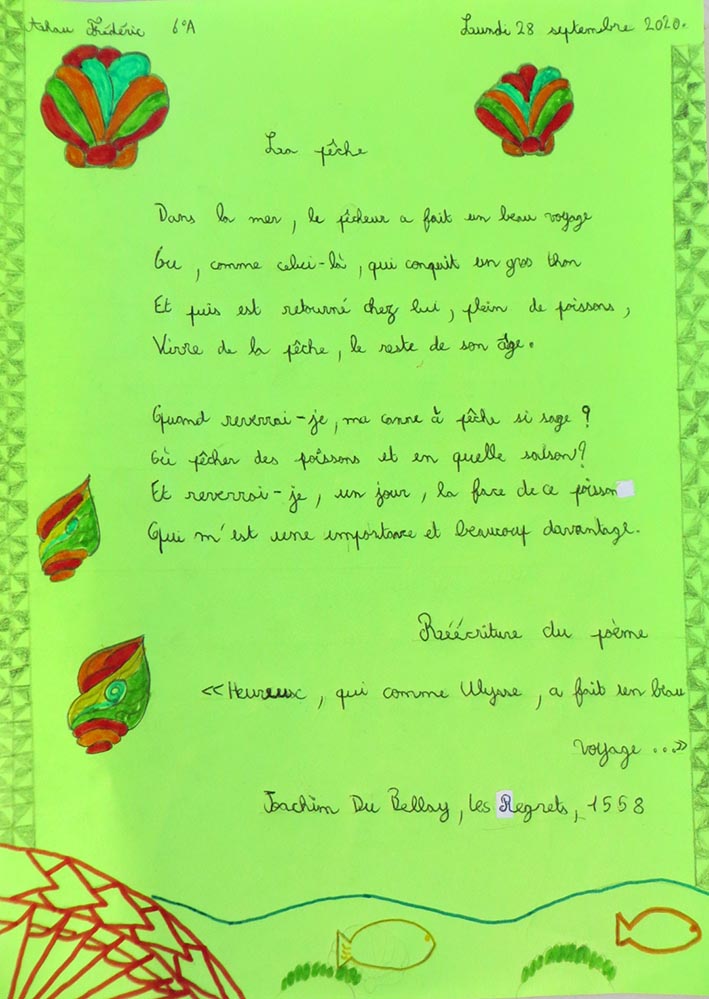 Frédéric 6°A
Lundi 28 septembre 2020.
La pêche
Dans la mer, le pêcheur a fait un beau voyage
Ou, comme celui-là, qui conquit un gros thon
Et puis est retourné chez lui, plein de poissons,
Vivre de la pêche, le reste de son âge.
Quand reverrai-je, ma canne à pêche si sage ?
Où pêcher des poissons et en quelle saison ?
Et reverrai-je, un jour, la face de ce poisson
Qui m'est une importance et beaucoup davantage.
Réécriture du poème
«Heureux, qui comme Ulysse, a fait un beau
voyage ...»
Joachim Du Bellay, Les Regrets, 1558